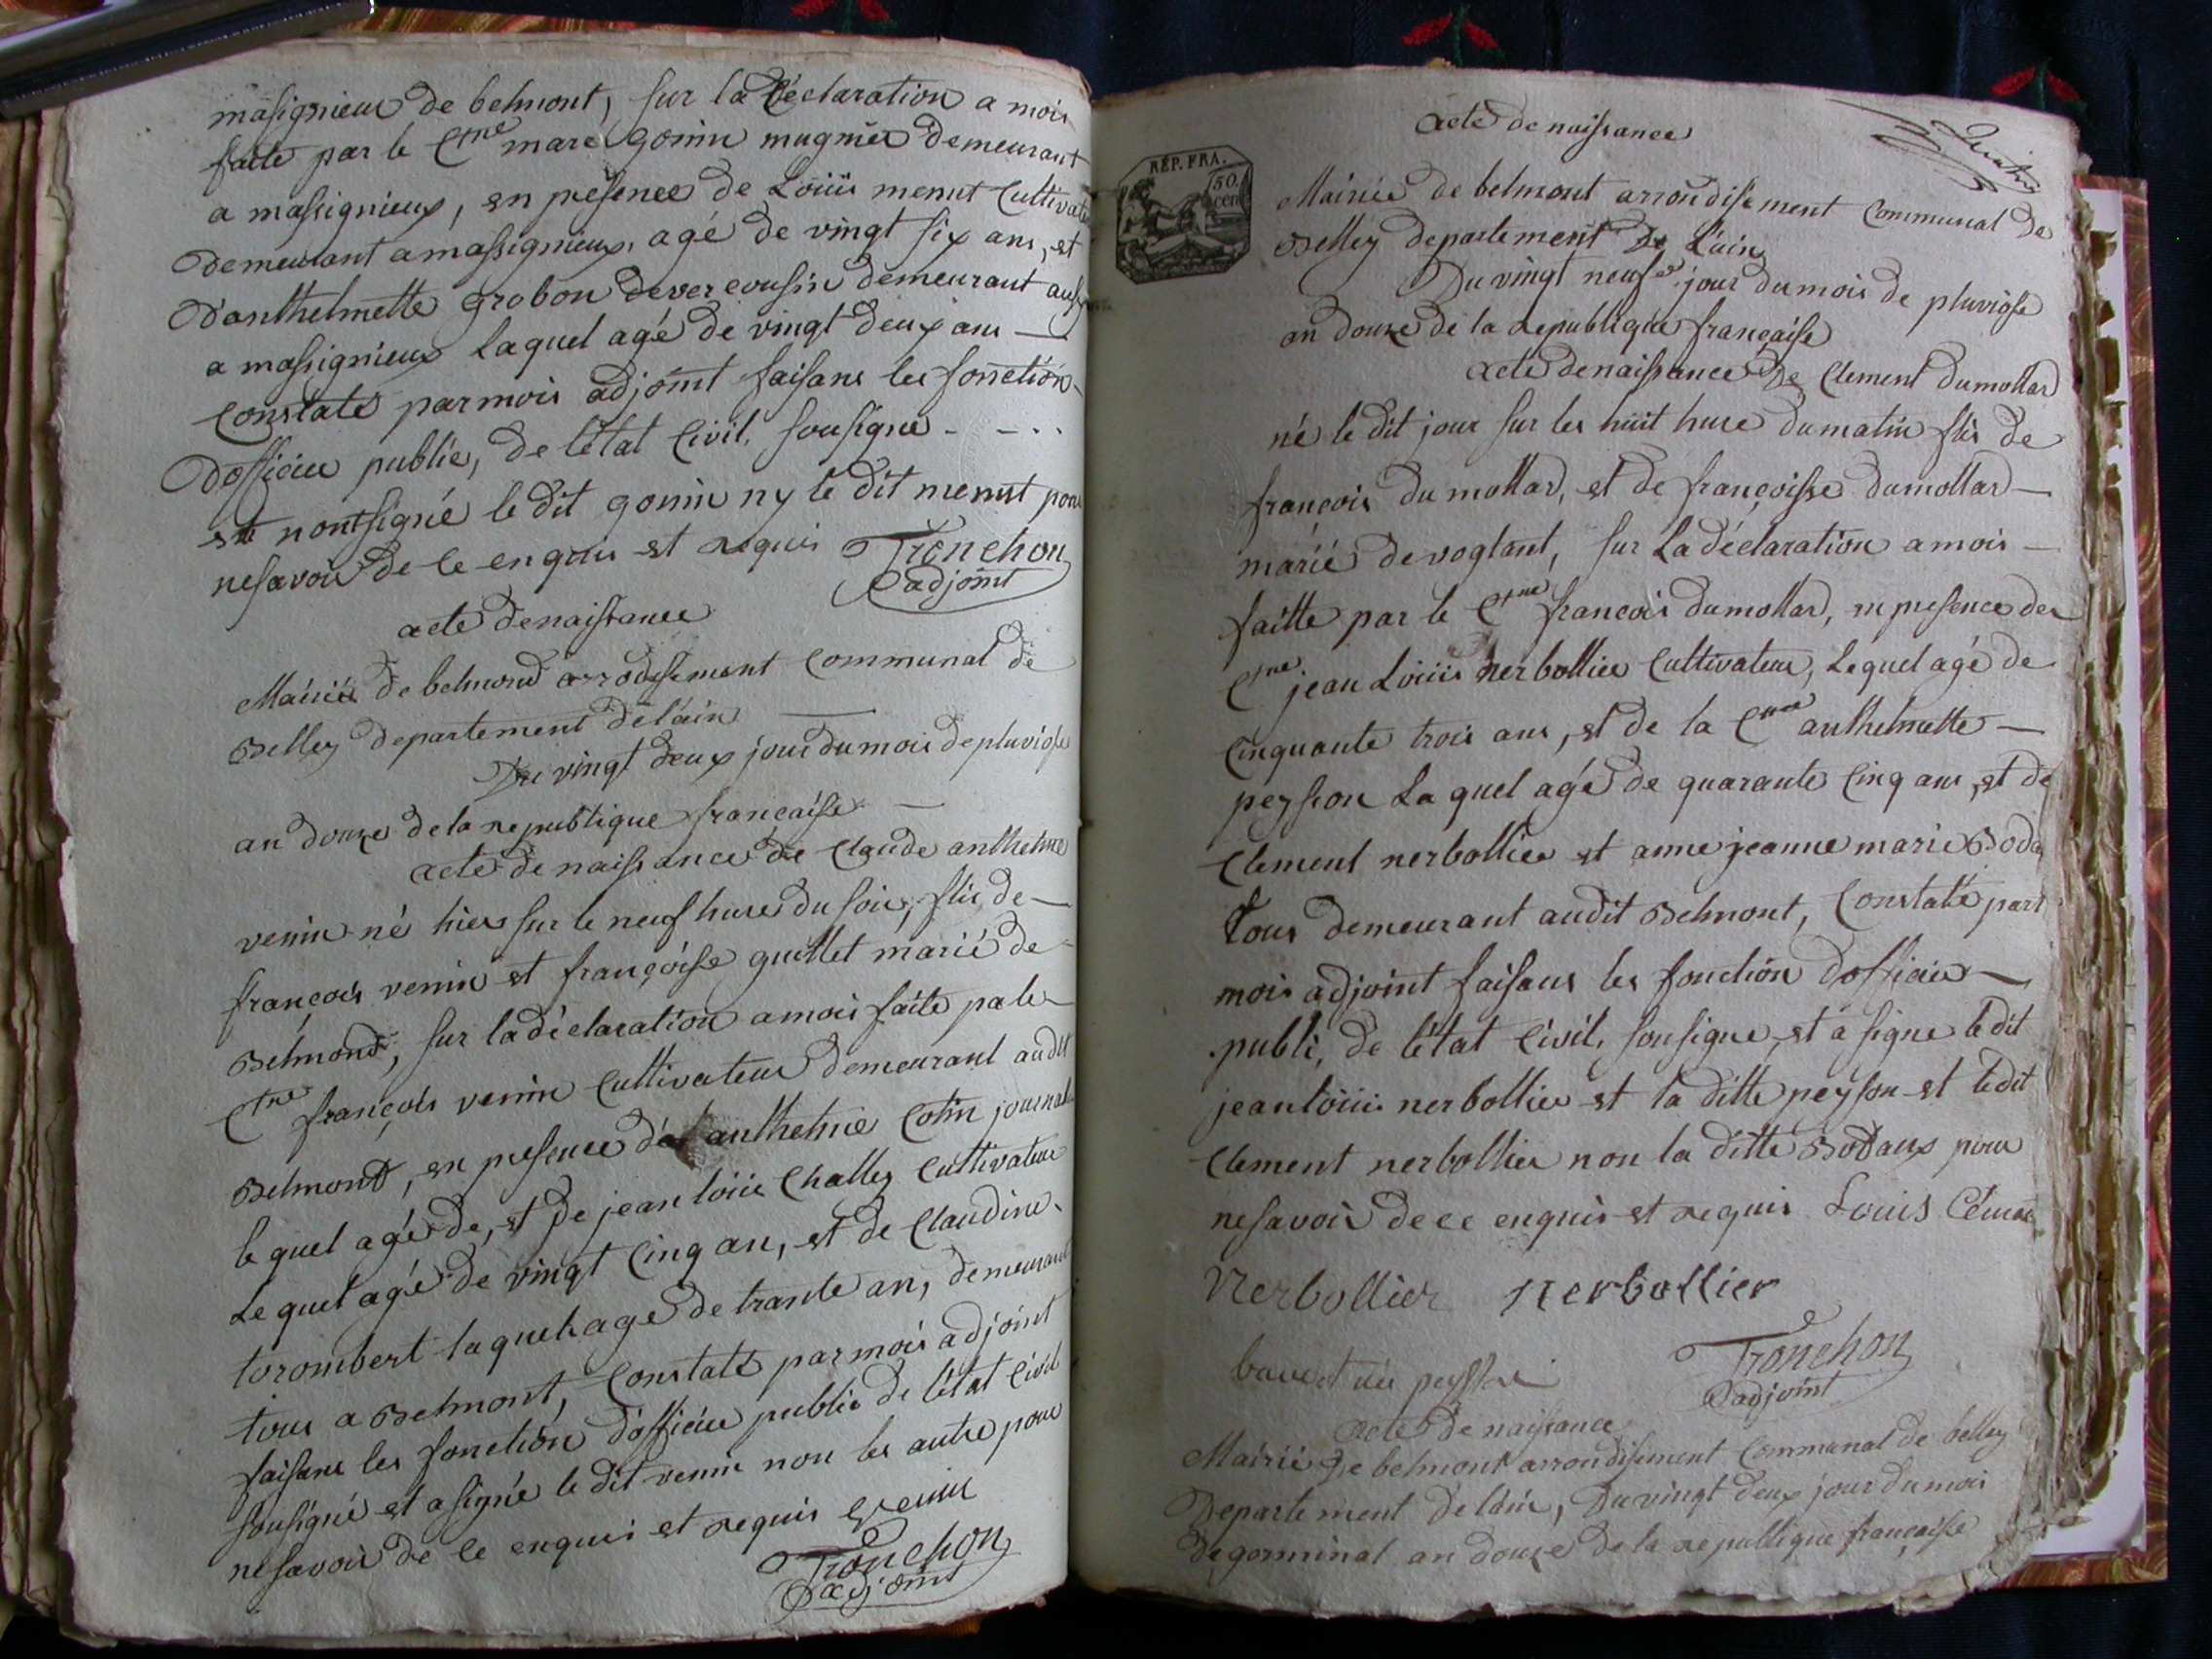 masignieux de belmont, sur la déclaration a mois
faite par le Ctne marc gonin mugnier demeurant
a massignieux, en présence de Loüis menut Cultivat
demeurant a massignieux, agé de vingt six ans, et
Danthelmette grobon devercousin demeurant aussy
a massignieux Laquel agé de vingt deux ans —
Constaté par mois adjoint faisans les fonction
Dofficiee public, de létat Civil, sousigne - - . .
et nontsigné le dit gonin ny le dit menut pour
nesavoir de Ce enquis et requis Tronchon
adjoint
acte de naissance
Mairie de belmond arrodisement Communal de
Belley departement de láin —
Du vingt deux jour du mois de pluviose
an douze de la republique françaíse —
acte de naissance de Claude anthelme
venin né hier sur le neuf hure du soir, flis de —
françois venin et françoise guillet marié de
Belmond, sur la déclaration a mois faite pa le
Ctne françois venin Cultivateur demeurant audit
Belmond, en presence de anthelme Cotin journal
le quel agé de, et de jean loüis Challey Cultivateur
Le quel agé de vingt Cinq an, et de Claudine
torombert laquel agé de trante an, demeurant
tous a Belmont, Constaté par mois adjoint
faisans les fonction dofficiee public de létat Civil
sousigné et a signé le dit venin non les autre pour
nesavoir de Ce enquis et requis venin
Tronchon
adjoint
acte de naissance
RÉP. FRA.
50.
cen
Mairie de belmont arrondisement Communal de
Belley departement de Láin
Du vingt neuf jour du mois de pluviose
an douze de la republique française
acte de naissance de Clement dumollard
né le dit jour sur les huit hure du matin flis de
françois dumollard, et de françoisse dumollard —
marié de voglant, sur La déclaration a mois —
faitte par le Ctne françois dumollard, en presence des
Ctne jean Loüis nerbollier Cultivateur, Lequel agé de
Cinquante trois ans, et de la Cnne anthelmette —
peysson Laquel agé de quarante Cinq ans, et de
Clement nerbollier et anne jeanne marie Boda
tous demeurant audit Belmont, Constaté part
mois adjoint faisans les fonction dofficier —
publi, de létat Civil, sousigne, et a signe le dit
jean loüis nerbollier et la ditte peyson et le dit
Clement nerbollier non la ditte Bodaux pour
nesavoir de ce enquis et requis Louis Cémen
Nerbollier nerbollier
Tronchon
adjoint
acte de naissance
Mairie de belmont arrondisement Communal de belley
Departement de láin, Du vingt deux jour du mois
de gorminal an douze de la republique française